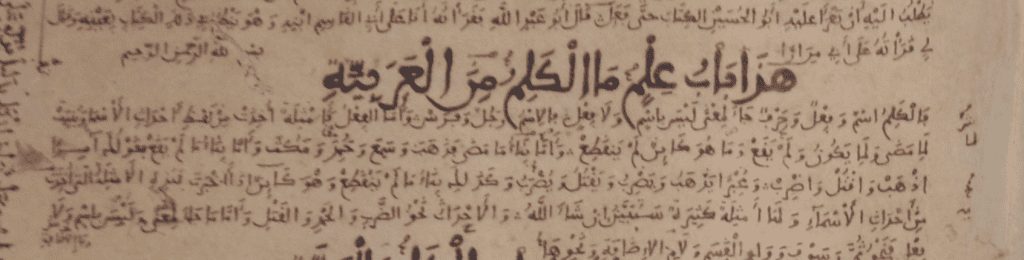 يطلب اليه أن يقرأ عليه أبو الحسين الكتاب حتى فعل قال أبو عبد الله قرأته أنا على أبي القاسم ابنه وهو ينظر في ذلك الكتاب بعينه وقال
لي قرأته على أبي مرارا
بسم الله الرحمن الرحيم
هذا باب علم ما الكلم من العربية
فالكلم اسم وفعل وحرف جاء لمعنى ليس باسم ولا فعل فالاسم رجل وفرس وأما الفعل فأمثلة أخذت من لفظ أحداث الأسماء وبنيت
لما مضى ولما يكون ولم يقع وما هو كائن لم ينقطع فأما بناء ما مضى فذهب وسمع وحمد ومكث وأما بناء ما لم يقع فقولك آمرا
اذهب واقتل واضرب ومخبرا يذهب ويضرب ويقتل ويضرب وكذلك بناء ما لم ينقطع وهو كائن إذا أخبرت فهذه الأمثلة التي أخذت
من أحداث الأسماء ولها أمثلة كثيرة ستبين إن شاء الله والأحداث نحو الضرب والحمد والقتل وأما ما جاء لمعنى وليس باسم ولا
فعل فنحو ثم وسوف وواو القسم ولام الإضافة ونحوها